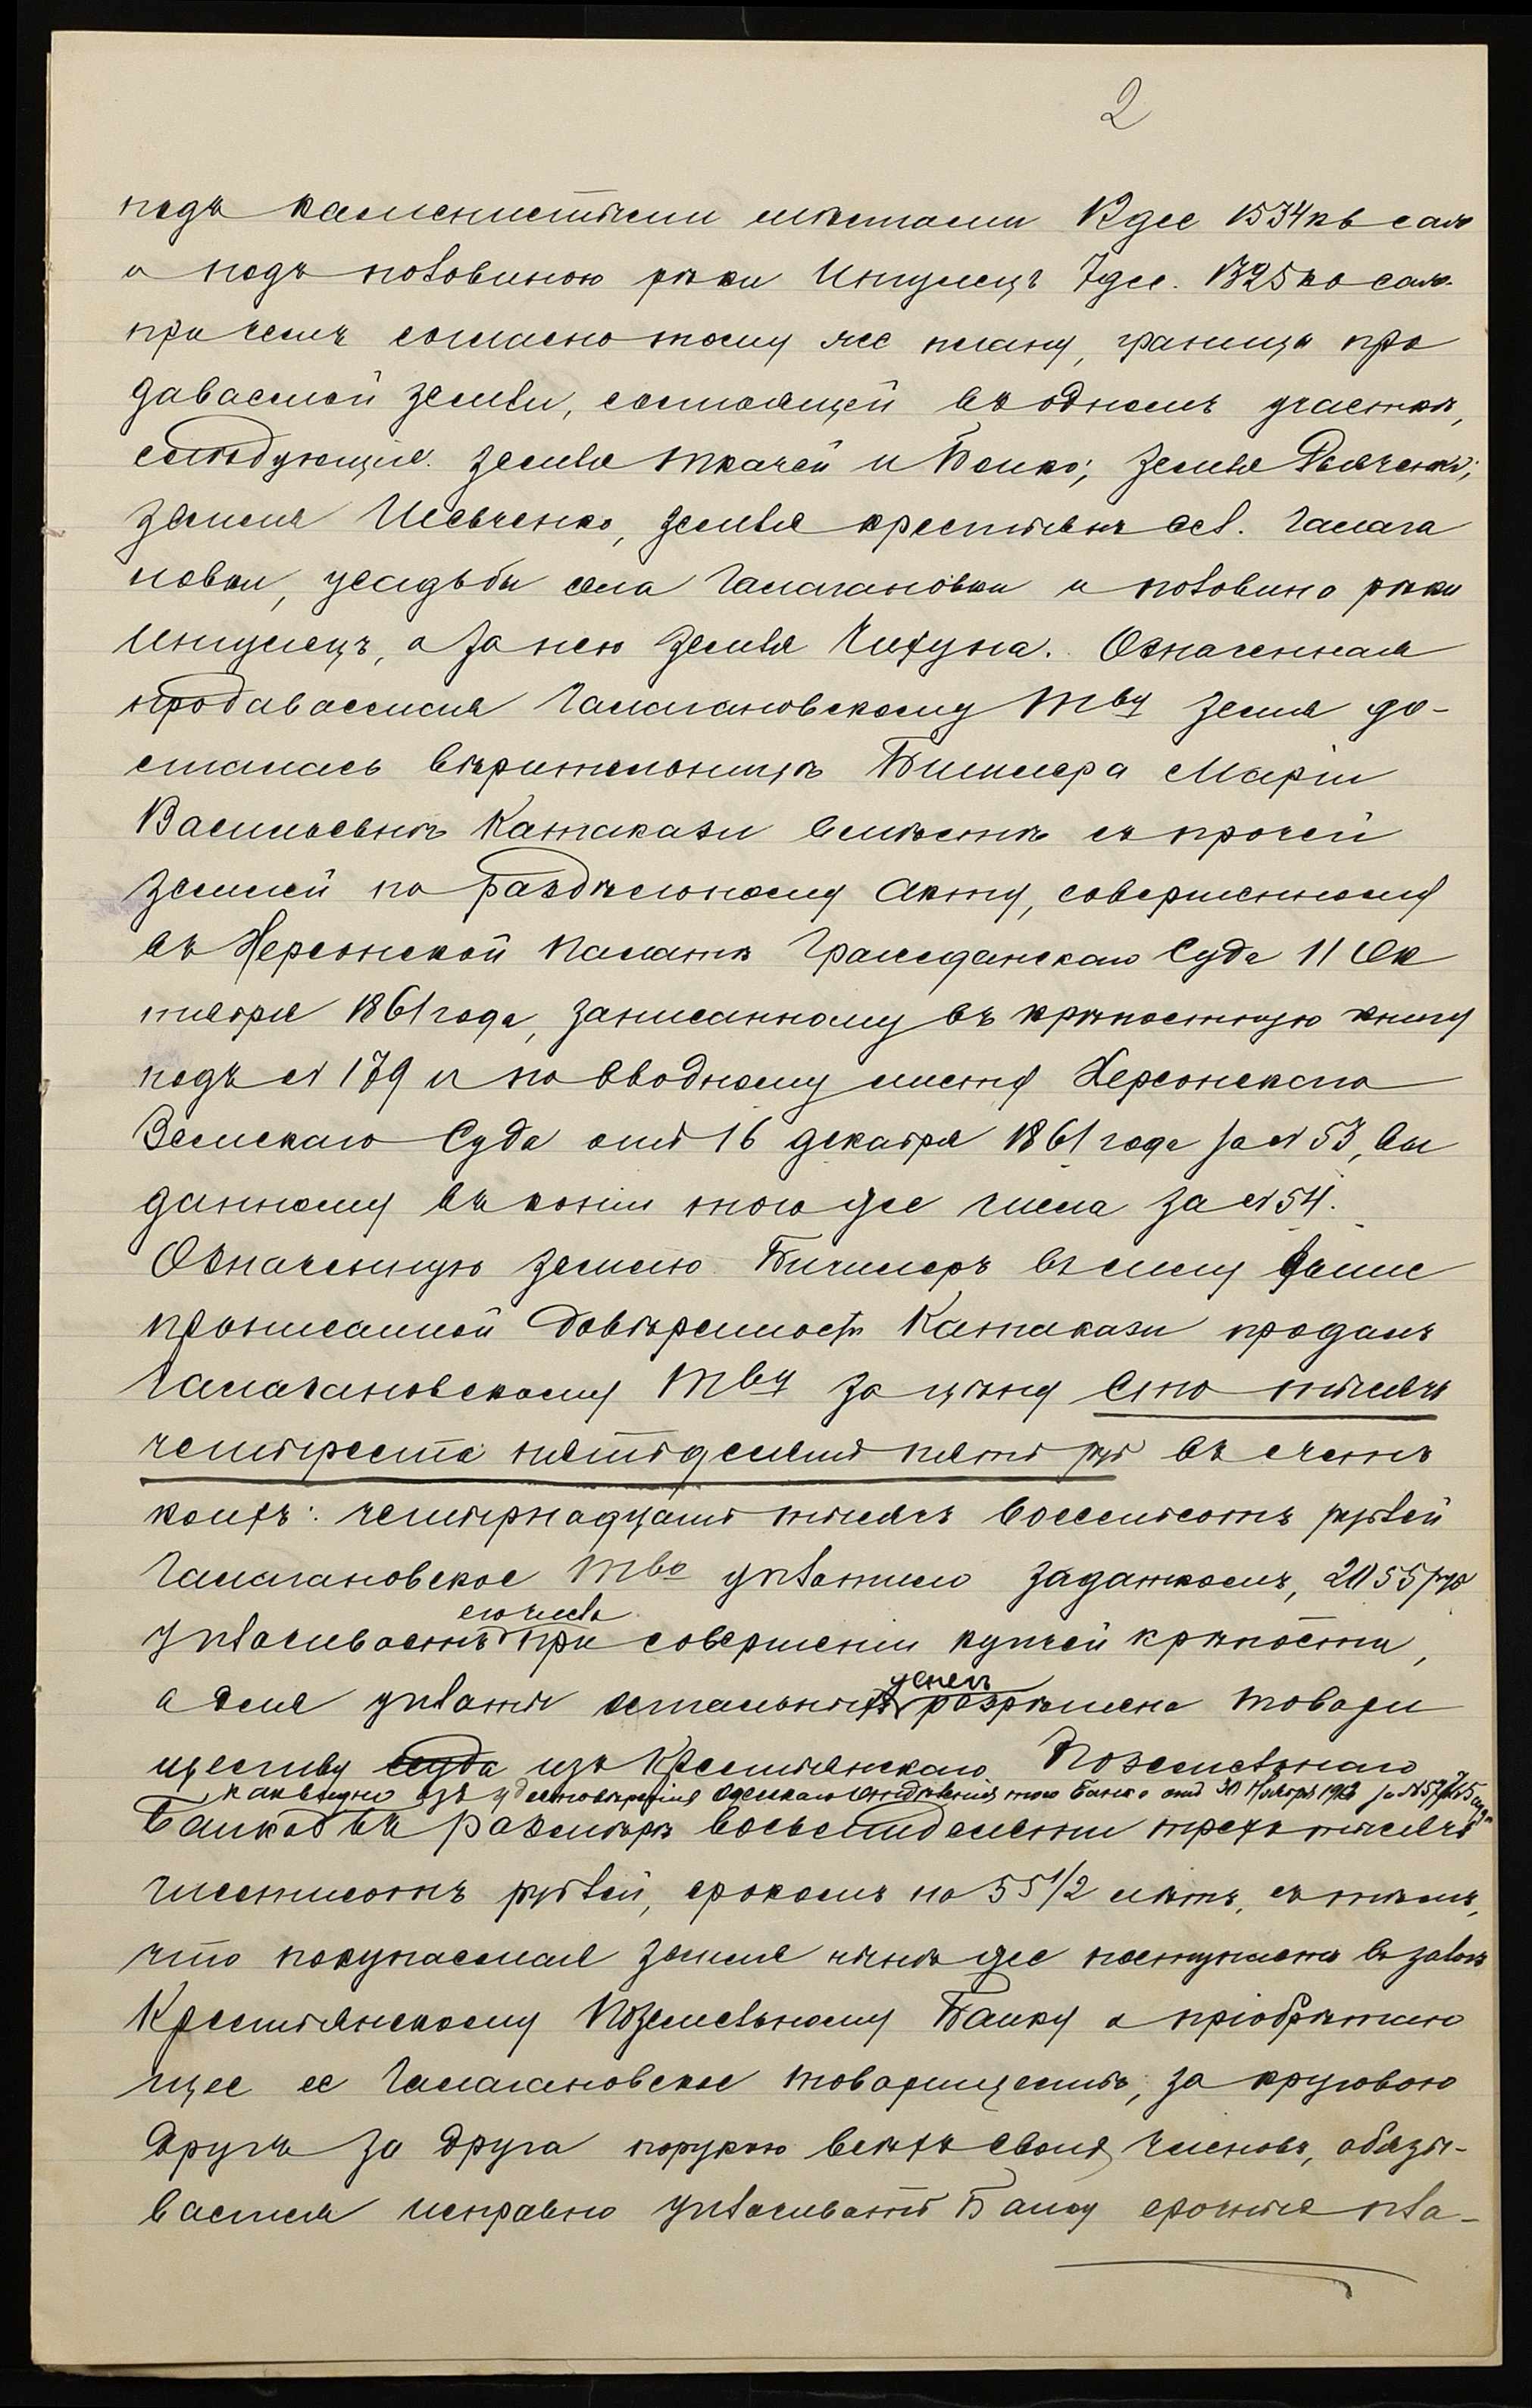 2
подъ каменистыми мѣстами 12 дес 1534 кв саж
и подъ половиною рѣки Ингулецъ 7 дес. 1325 кв саж.
при чемъ согласно тому же плану, границы про
даваемой земли, состоящей въ одномъ участкѣ,
слѣдующія: земля Ткачей и Бойко; земля Дьяченко;
земля Шевченко, земля крестьянъ сел. Галага
новки, усадьбы села Галагановки и половина рѣки
Ингулецъ, а за нею земля Чихуна. Означенная
продаваемая Галагановскому Тву земля до-
сталась вѣрительницѣ Бишлера Маріи
Васильевнѣ Катакази вмѣстѣ съ прочей
землей по раздѣльному акту, совершенному
въ Херсонской Палатѣ Гражданскаго Суда 11 Ок
тября 1861 года, записанному въ крѣпостную книгу
подъ № 179 и по вводному листу Херсонскаго
Земскаго Суда отъ 16 декабря 1861 года за № 53, вы
данному въ копіи того же числа за № 54.
Означенную землю Бишлеръ въ силу выше
прописанной довѣренности Катакази продалъ
Галагановскому Тву за цѣну сто тысячъ
четыреста пятьдесятъ пять руб въ счетъ
коихъ: четырнадцать тысячъ восемьсотъ рублей
Галагановское Тво уплатило задаткомъ, 2055 руб
сочиста
уплачиваетъ при совершеніи купчей крѣпости,
денегъ
а для уплаты остальныхъ разрѣшена товари
ществу ссуда изъ Крестьянскаго Поземельнаго
какъ видно изъ удостовѣренія Одесскаго Отдѣленія того Банка отъ 30 Ноября 1912 за № ссуда
Банка въ размѣрѣ восьмидесяти трехъ тысячъ
шестисотъ рублей, срокомъ на 55 1/2 лѣтъ, съ тѣмъ,
что покупаемая земля нынѣ же поступаетъ въ залогъ
Крестьянскому Поземельному Банку а пріобрѣтаю
щее ее Галагановское товарищество, за круговою
другъ за друга порукою всѣхъ своихъ членовъ, обязы-
вается исправно уплачивать Банку срочные пла-